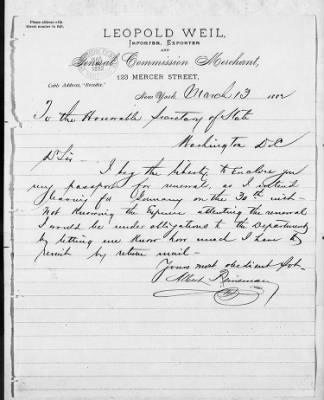 Please address all
LEOPOLD WEIL,
IMPORTER, EXPORTER
AND
General Commission Merchant,
123 MERCER STREET,
Cable Address,
New York March 13 188
To the Honourable Secretary of State
Washington D.C
D Sir
I beg the liberty to enclose you
my passport for renewal, as I intend
leaving for Germany on the 30th inst-
Not Knowing the Expense attending the renewal
I would be under obligations to the Department
by letting me Know how much I have to
remit by return mail-
Yours most obedient Svt.
Albert